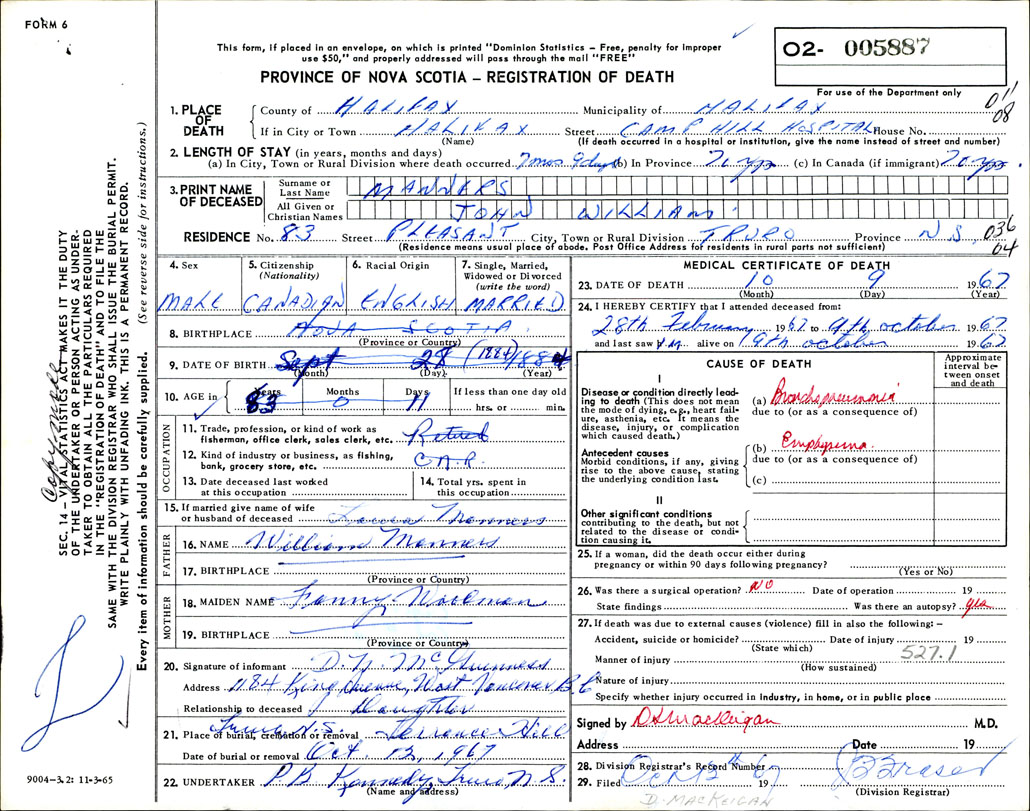 FORM 6
This form, if placed in an envelope, on which is printed "Dominion Statistics – Free, penalty for improper
use $50," and properly addressed will pass through the mail "FREE"
02- 005887
PROVINCE OF NOVA SCOTIA – REGISTRATION OF DEATH
For use of the Department only
011
08
1. PLACE OF DEATH
County of HALIFAX Municipality of HALIFAX
If in City or Town HALIFAX Street CAMP HILL HOSPITAL House No.
(Name) (If death occurred in a hospital or institution, give the name instead of street and number)
2. LENGTH OF STAY (in years, months and days)
(a) In City, Town or Rural Division where death occurred 7 mos 9 days (b) In Province 70 yrs (c) In Canada (if immigrant) 70 yrs.
3. PRINT NAME OF DECEASED
Surname or Last Name MANNERS
All Given or Christian Names JOHN WILLIAM
RESIDENCE No. 83 Street PLEASANT City, Town or Rural Division TRURO Province N.S. 036
04
(Residence means usual place of abode. Post Office Address for residents in rural parts not sufficient)
4. Sex
MALE
5. Citizenship
(Nationality)
CANADIAN
6. Racial Origin
ENGLISH
7. Single, Married,
Widowed or Divorced
(write the word)
MARRIED
8. BIRTHPLACE NOVA SCOTIA
(Province or Country)
9. DATE OF BIRTH Sept 28 (1884) 1884
(Month) (Day) (Year)
10. AGE in Years Months Days If less than one day old
83 0 11 hrs. or min.
OCCUPATION
11. Trade, profession, or kind of work as
fisherman, office clerk, sales clerk, etc. Retired
12. Kind of industry or business, as fishing,
bank, grocery store, etc. C.N.R.
13. Date deceased last worked
at this occupation
14. Total yrs. spent in
this occupation
15. If married give name of wife
or husband of deceased Manners
FATHER
16. NAME William Manners
17. BIRTHPLACE
(Province or Country)
MOTHER
18. MAIDEN NAME Fanny Woolman
19. BIRTHPLACE
(Province or Country)
20. Signature of informant D. N. McGuinness
Address 1184 King Avenue, West Vancouver B.C
Relationship to deceased Daughter
Truro N.S.
21. Place of burial, cremation or removal Terrence Hill
Date of burial or removal Oct 12, 1967
22. UNDERTAKER P.B. Kennedy, Truro N.S.
(Name and address)
MEDICAL CERTIFICATE OF DEATH
23. DATE OF DEATH 10 9 1967
(Month) (Day) (Year)
24. I HEREBY CERTIFY that I attended deceased from:
28th February 1967 to 9th october 1967
and last saw him alive on 9th october 1967
CAUSE OF DEATH
Approximate
interval be-
tween onset
and death
I
Disease or condition directly lead-
ing to death (This does not mean
the mode of dying, e.g., heart fail-
ure, asthenia, etc. It means the
disease, injury, or complication
which caused death.)
(a) Bronchopneumonia
due to (or as a consequence of)
Antecedent causes
Morbid conditions, if any, giving
rise to the above cause, stating
the underlying condition last.
(b) Emphysema
due to (or as a consequence of)
(c)
II
Other significant conditions
contributing to the death, but not
related to the disease or condi-
tion causing it.
25. If a woman, did the death occur either during
pregnancy or within 90 days following pregnancy?
(Yes or No)
26. Was there a surgical operation? NO Date of operation 19
State findings Was there an autopsy? yes
27. If death was due to external causes (violence) fill in also the following: –
Accident, suicide or homicide? Date of injury 19
(State which) 527.1
Manner of injury
(How sustained)
Nature of injury
Specify whether injury occurred in industry, in home, or in public place
Signed by D MacKeigan M.D.
Address Date 19
28. Division Registrar's Record Number
29. Filed Oct 12th 1967 Fraser
(Division Registrar)
D. MACKEIGAN
SEC. 14 – VITAL STATISTICS ACT MAKES IT THE DUTY
OF THE UNDERTAKER OR PERSON ACTING AS UNDER-
TAKER TO OBTAIN ALL THE PARTICULARS REQUIRED
IN THE "REGISTRATION OF DEATH" AND TO FILE THE
SAME WITH THE DIVISION REGISTRAR WHO SHALL ISSUE THE BURIAL PERMIT.
WRITE PLAINLY WITH UNFADING INK. THIS IS A PERMANENT RECORD.
Every item of information should be carefully supplied. (See reverse side for instructions.)
9004-3.2: 11-3-65